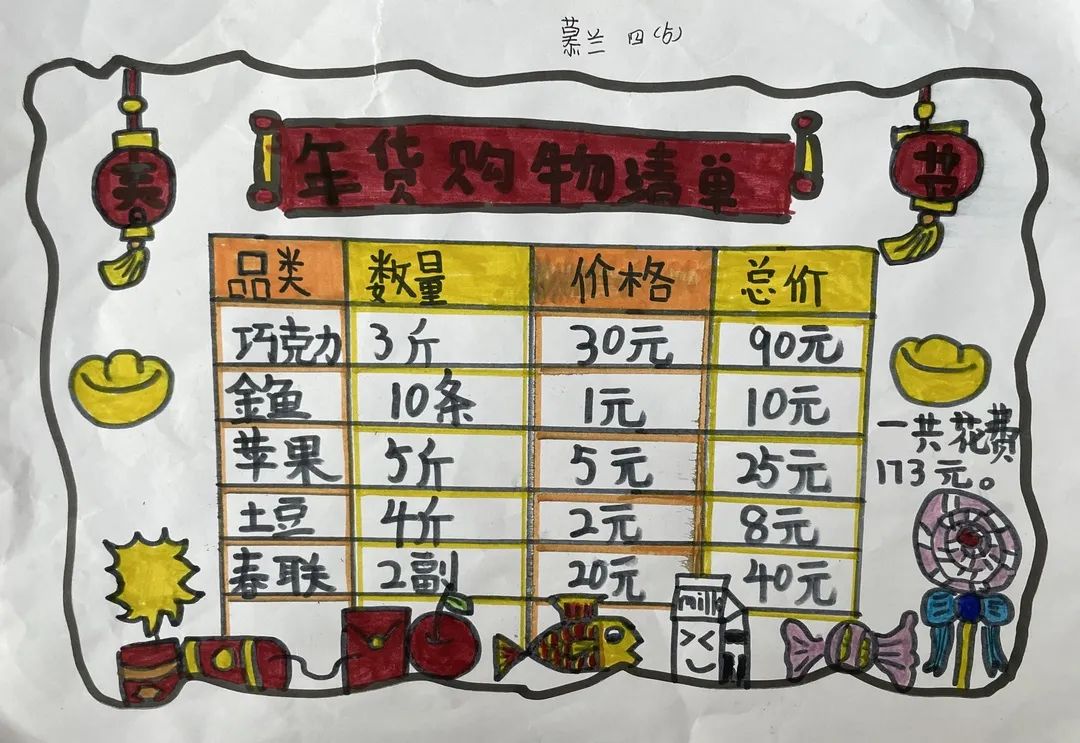 慕兰 四(5)
春
年货购物清单
节
品类 数量 价格 总价
巧克力 3斤 30元 90元
金鱼 10条 1元 10元
苹果 5斤 5元 25元
土豆 4斤 2元 8元
春联 2副 20元 40元
一共花费
173元。
milk